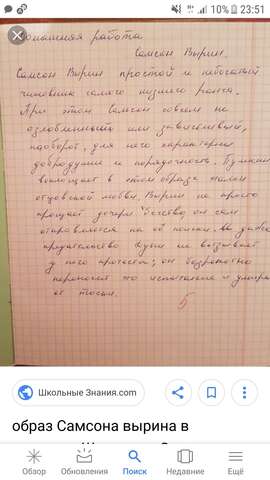 10% 23:51
Домашняя работа
Самсон Вырин.
Самсон Вырин простой и небогатый
чиновник самого низшего ранга.
При этом Самсон совсем не
озлобленный или завистливый,
наоборот, для него характерны
добродушие и порядочность. Пушкин
воплощает в этом образе идеал
отцовской любви. Вырин не просто
прощает дочери бегство, он сам
отправляется на её поиски. даже
предательство Дуни не вызывает
у него протеста; он безропотно
переносит это испытание и умирает
от тоски.
5
Школьные Знания.com
образ Самсона вырина в
Обзор
Обновления
Поиск
Недавние
Ещё